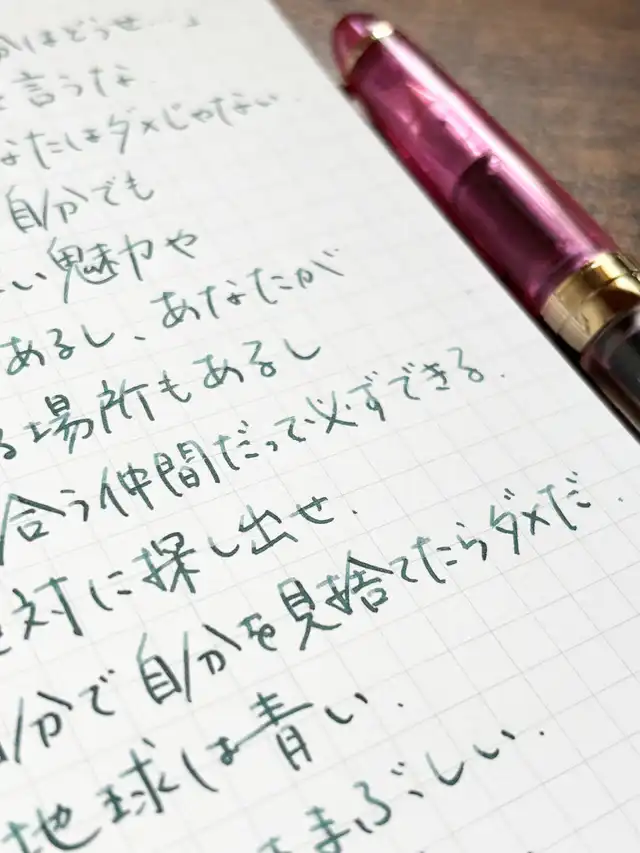 はどうせ…」
言うな
なたはダメじゃない.
自分でも
い魅力や
あるし、あなたが
る場所もあるし
合う仲間だって必ずできる.
対に探し出せ.
分で自分を見捨てたらダメだ.
地球は青い.
まぶしい.